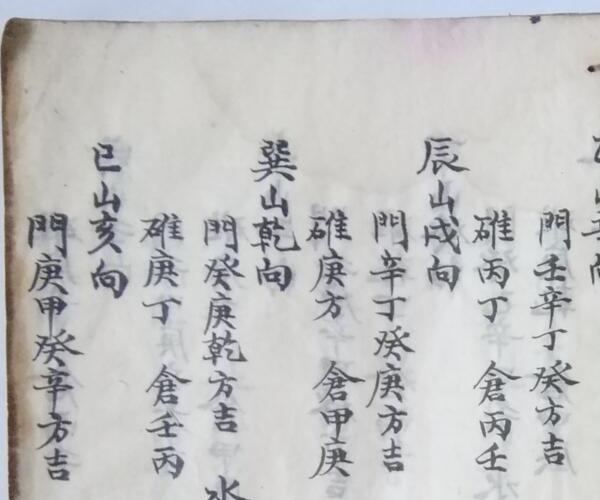 門壬辛丁癸方吉
碓丙丁 倉丙壬
辰山戌向
門辛丁癸庚方吉
碓庚方 倉甲庚
巽山乾向
門癸庚乾方吉
碓庚丁 倉壬丙
巳山亥向
門庚甲癸辛方吉